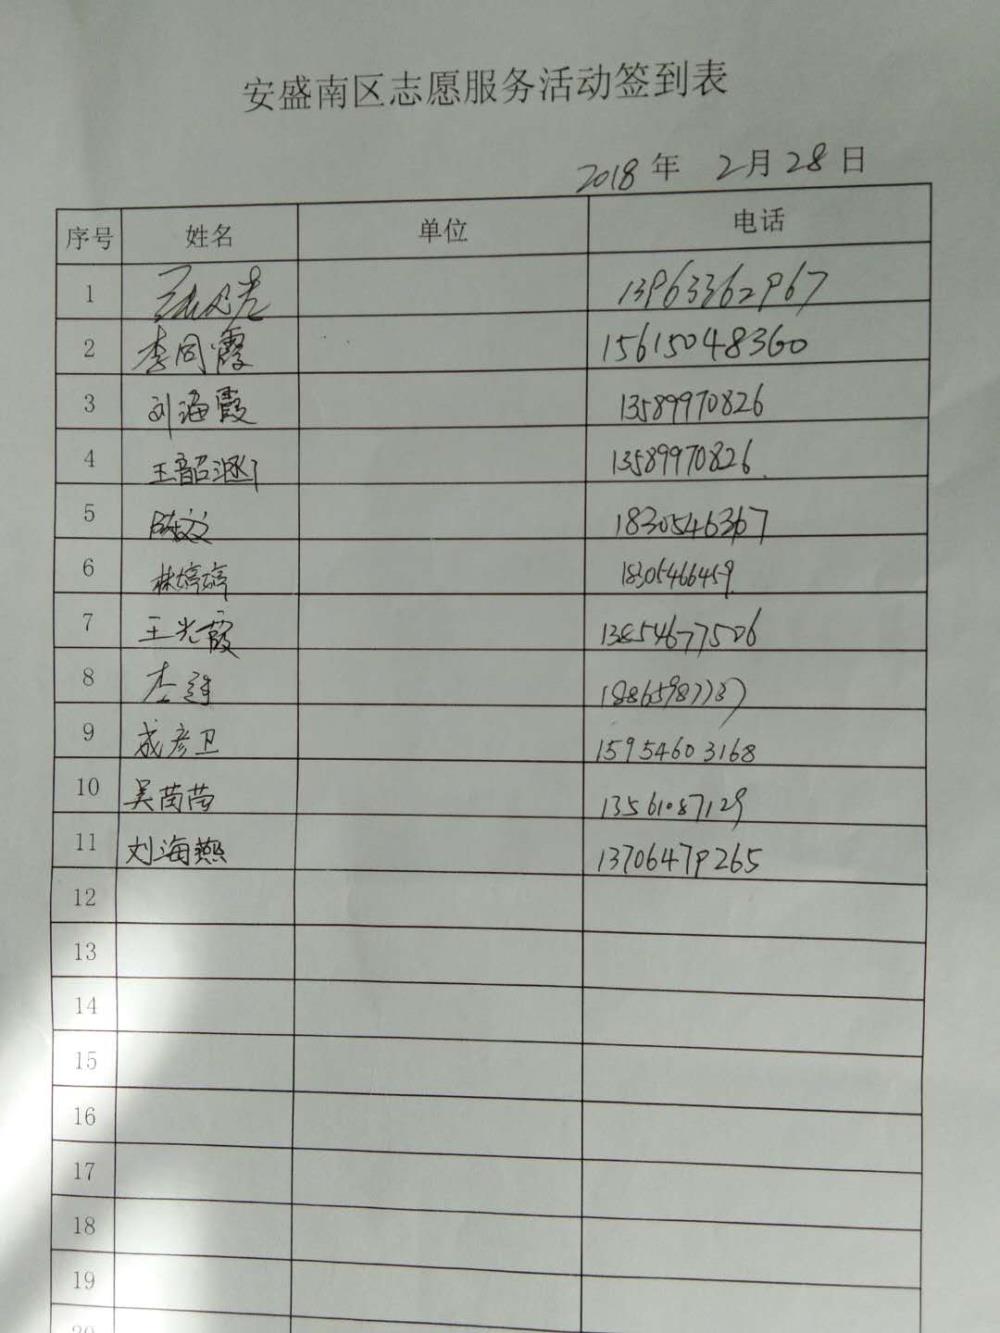 安盛南区志愿服务活动签到表
2018年 2月28日
序号 姓名 单位 电话
1 13963362967
2 李同霞 15615048360
3 刘海霞 13589970826
4 王韶涵 13589970826
5 陈文文 1830546367
6 林婷婷 18305466459
7 王光霞 13854677506
8 李连 18865987737
9 成彦卫 15954603168
10 吴茵茵 13561087129
11 刘海燕 13706479265
12
13
14
15
16
17
18
19
20